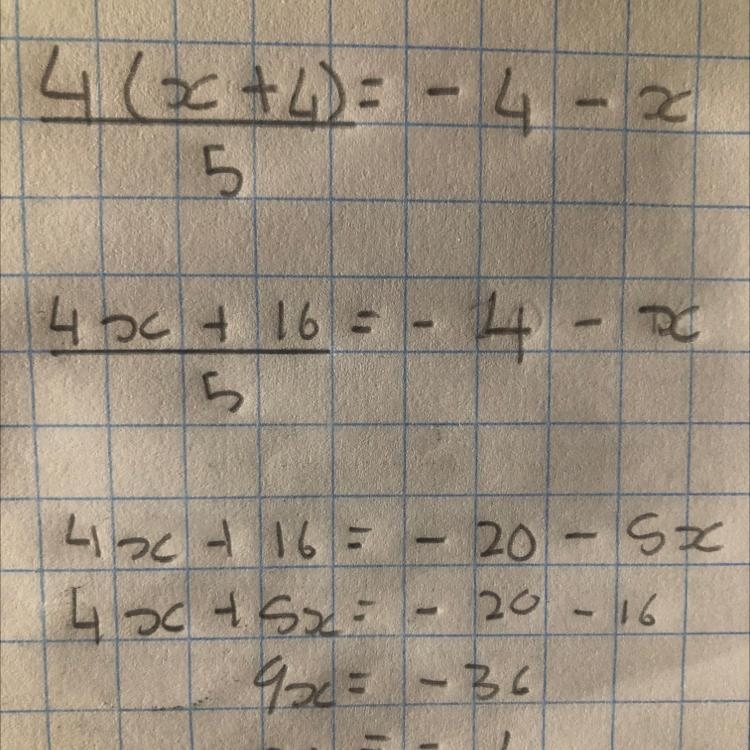 4(x+4) = - 4 - x
5
4x + 16 = - 4 - x
5
4x + 16 = - 20 - 5x
4x + 5x = - 20 - 16
9x = - 36